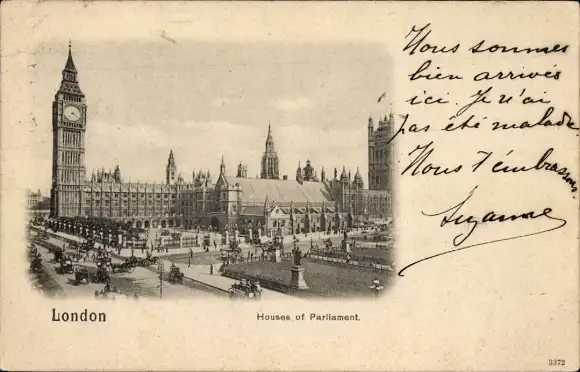 Nous sommes
bien arrivés
ici. Je n'ai
pas été malade.
Nous t'embrassons.
Suzanne
London
Houses of Parliament.
3372